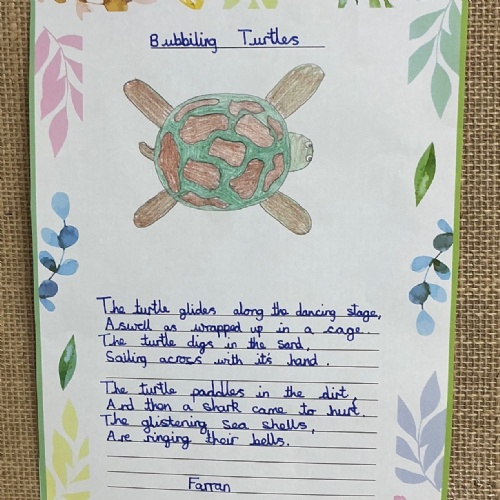 Bubbiling Turtles
The turtle glides along the dancing stage,
Aswell as wrapped up in a cage.
The turtle digs in the sand,
Sailing across with it's hand.
The turtle paddles in the dirt,
And then a shark came to hurt.
The glistening sea shells,
Are ringing their bells.
Farran